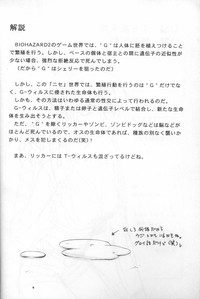 解説
BIOHAZARD2のゲーム世界では、'G'は人体に胚を植えつけることで
繁殖を行う。しかし、ベースの個体と宿主との間に遺伝子の近似性が
ないと、強烈な拒絶反応で死んでしまう。
（だから'G'はシェリーを狙ったのだ）
しかし、この「ニセ」世界では、繁殖行動を行うのは'G'だけでな
く、G-ウィルスに侵された生命体も行う。
しかも、その方法はいわゆる通常の性交によって行われるのだ。
G-ウィルスは、精子または卵子と遺伝子レベルで結合し、新たな生命
体を生み出そうとする。
ただ、'G'を除くリッカーやゾンビ、ゾンビドッグなどは脳などが
ほとんど死んでいるので、オスの生命体であれば、種族の別なく襲いかか
り、メスを犯しまくるのだ(笑)！
まあ、リッカーにはT-ウィルスも混ざってるけどね。